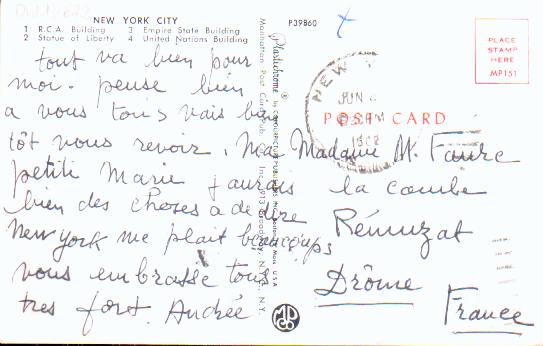 NEW YORK CITY
1 R.C.A. Building 3 Empire State Building
2 Statue of Liberty 4 United Nations Building
P39860
PLACE
STAMP
HERE
MP151
POST CARD
Plastichrome ®
Manhattan Post Card Pub. 913 Broadway, N.Y. N.Y.
NEW Y
JUN
PM
tout va bien pour
moi. pense bien
a vous tous vais bien
tôt vous revoir. Ma
petite Marie j'aurais
bien des choses a de dire
New York me plait beaucoups
vous embrasse tous
tres fort. Andrée
Madame M. Faure
la combe
Rémuzat
Drôme
France